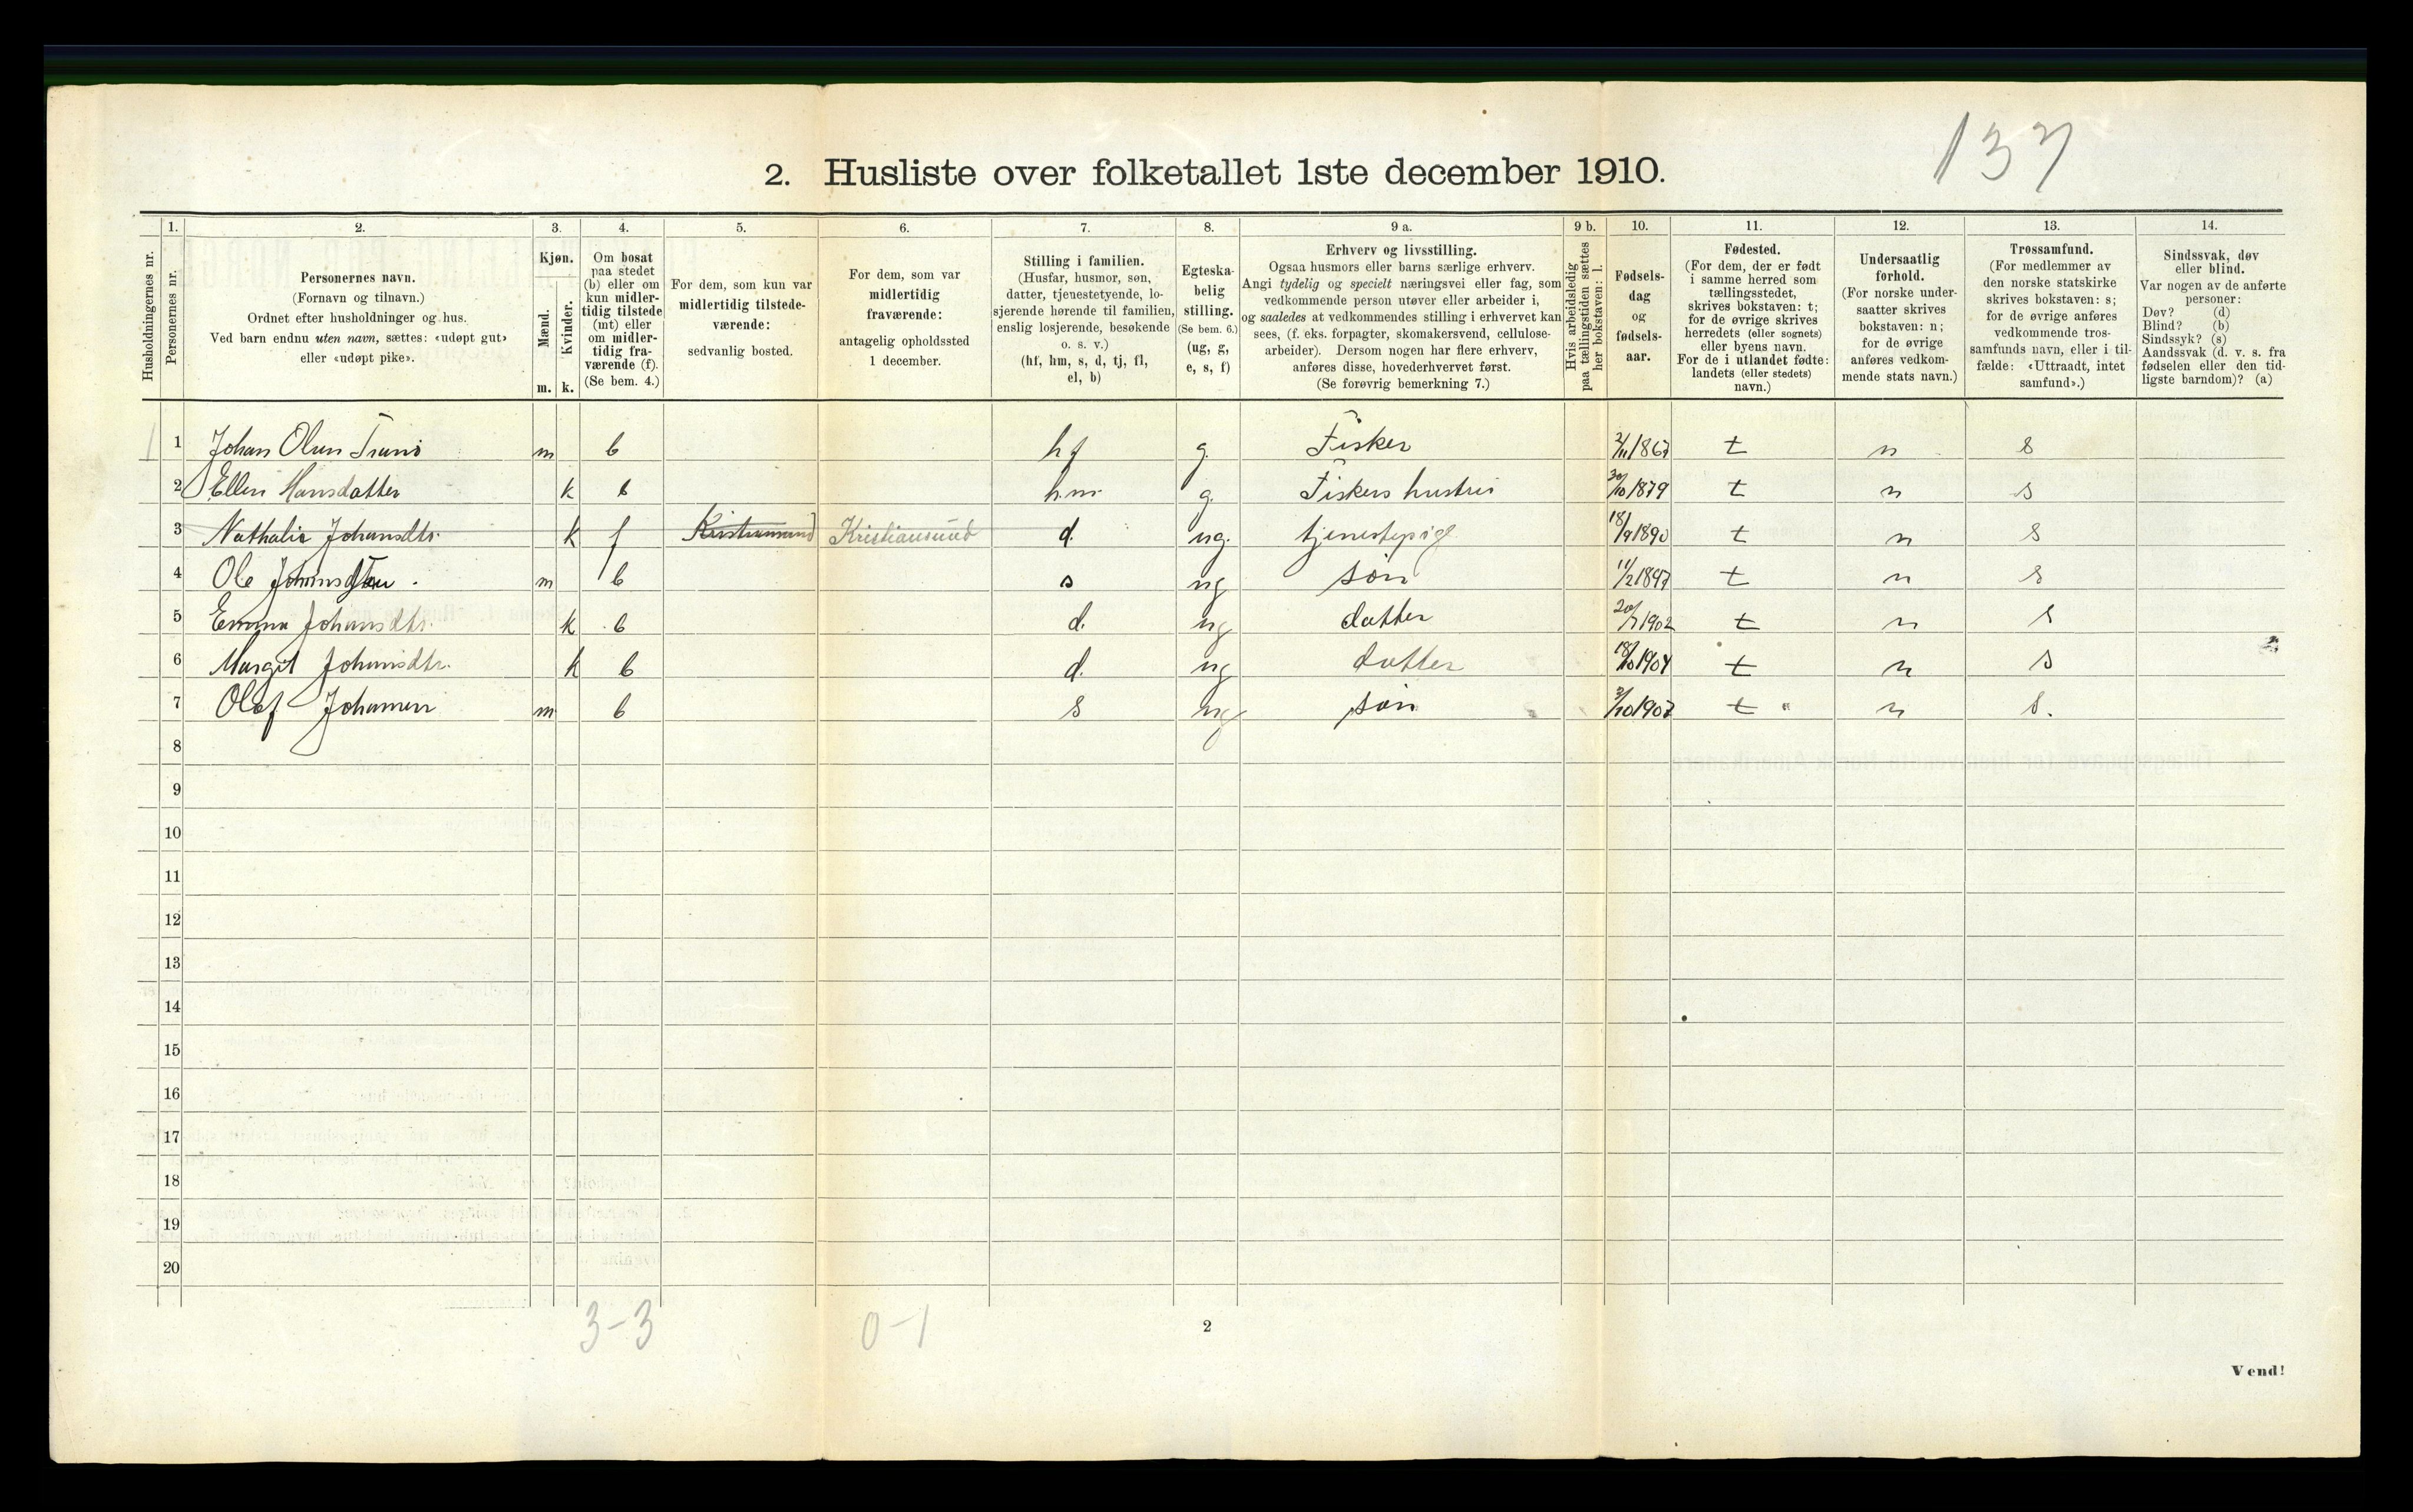 137
2. Husliste over folketallet 1ste december 1910.
Husholdningernes nr.
1. Personernes nr.
2. Personernes navn. (Fornavn og tilnavn.) Ordnet efter husholdninger og hus. Ved barn endnu uten navn, sættes: «udøpt gut» eller «udøpt pike».
3. Kjøn. Mænd. m. Kvinder. k.
4. Om bosat paa stedet (b) eller om kun midlertidig tilstede (mt) eller om midlertidig fraværende (f). (Se bem. 4.)
5. For dem, som kun var midlertidig tilstedeværende: sedvanlig bosted.
6. For dem, som var midlertidig fraværende: antagelig opholdssted 1 december.
7. Stilling i familien. (Husfar, husmor, søn, datter, tjenestetyende, losjerende hørende til familien, enslig losjerende, besøkende o. s. v.) (hf, hm, s, d, tj, fl, el, b)
8. Egteskabelig stilling. (Se bem. 6.) (ug, g, e, s, f)
9 a. Erhverv og livsstilling. Ogsaa husmors eller barns særlige erhverv. Angi tydelig og specielt næringsvei eller fag, som vedkommende person utøver eller arbeider i, og saaledes at vedkommendes stilling i erhvervet kan sees, (f. eks. forpagter, skomakersvend, cellulosearbeider). Dersom nogen har flere erhverv, anføres disse, hovederhvervet først. (Se forøvrig bemerkning 7.)
9 b. Hvis arbeidsledig paa tællingstiden sættes her bokstaven: l.
10. Fødselsdag og fødselsaar.
11. Fødested. (For dem, der er født i samme herred som tællingsstedet, skrives bokstaven: t; for de øvrige skrives herredets (eller sognets) eller byens navn. For de i utlandet fødte: landets (eller stedets) navn.)
12. Undersaatlig forhold. (For norske undersaatter skrives bokstaven: n; for de øvrige anføres vedkommende stats navn.)
13. Trossamfund. (For medlemmer av den norske statskirke skrives bokstaven: s; for de øvrige anføres vedkommende trossamfunds navn, eller i tilfælde: «Uttraadt, intet samfund».)
14. Sindssvak, døv eller blind. Var nogen av de anførte personer: Døv? (d) Blind? (b) Sindssyk? (s) Aandssvak (d. v. s. fra fødselen eller den tidligste barndom)? (a)
1 1 Johan Olsen m b hf g. Fisker 2/11 1867 t n s
2 Ellen Hansdatter k b hm g. Fiskers hustru 30/10 1879 t n s
3 Nathalie Johansdtr. k f Kristiansund Kristiansund d. ug. tjenestepige 18/9 1890 t n s
4 Ole m b s ug søn 11/2 1897 t n s
5 Emma Johansdtr. k b d. ug datter 20/7 1902 t n s
6 Margit Johansdtr. k b d. ug datter 18/10 1904 t n s
7 Olaf Johansen m b s ug søn 3/10 1907 t n s.
8
9
10
11
12
13
14
15
16
17
18
19
20
3-3 0-1
2
Vend!